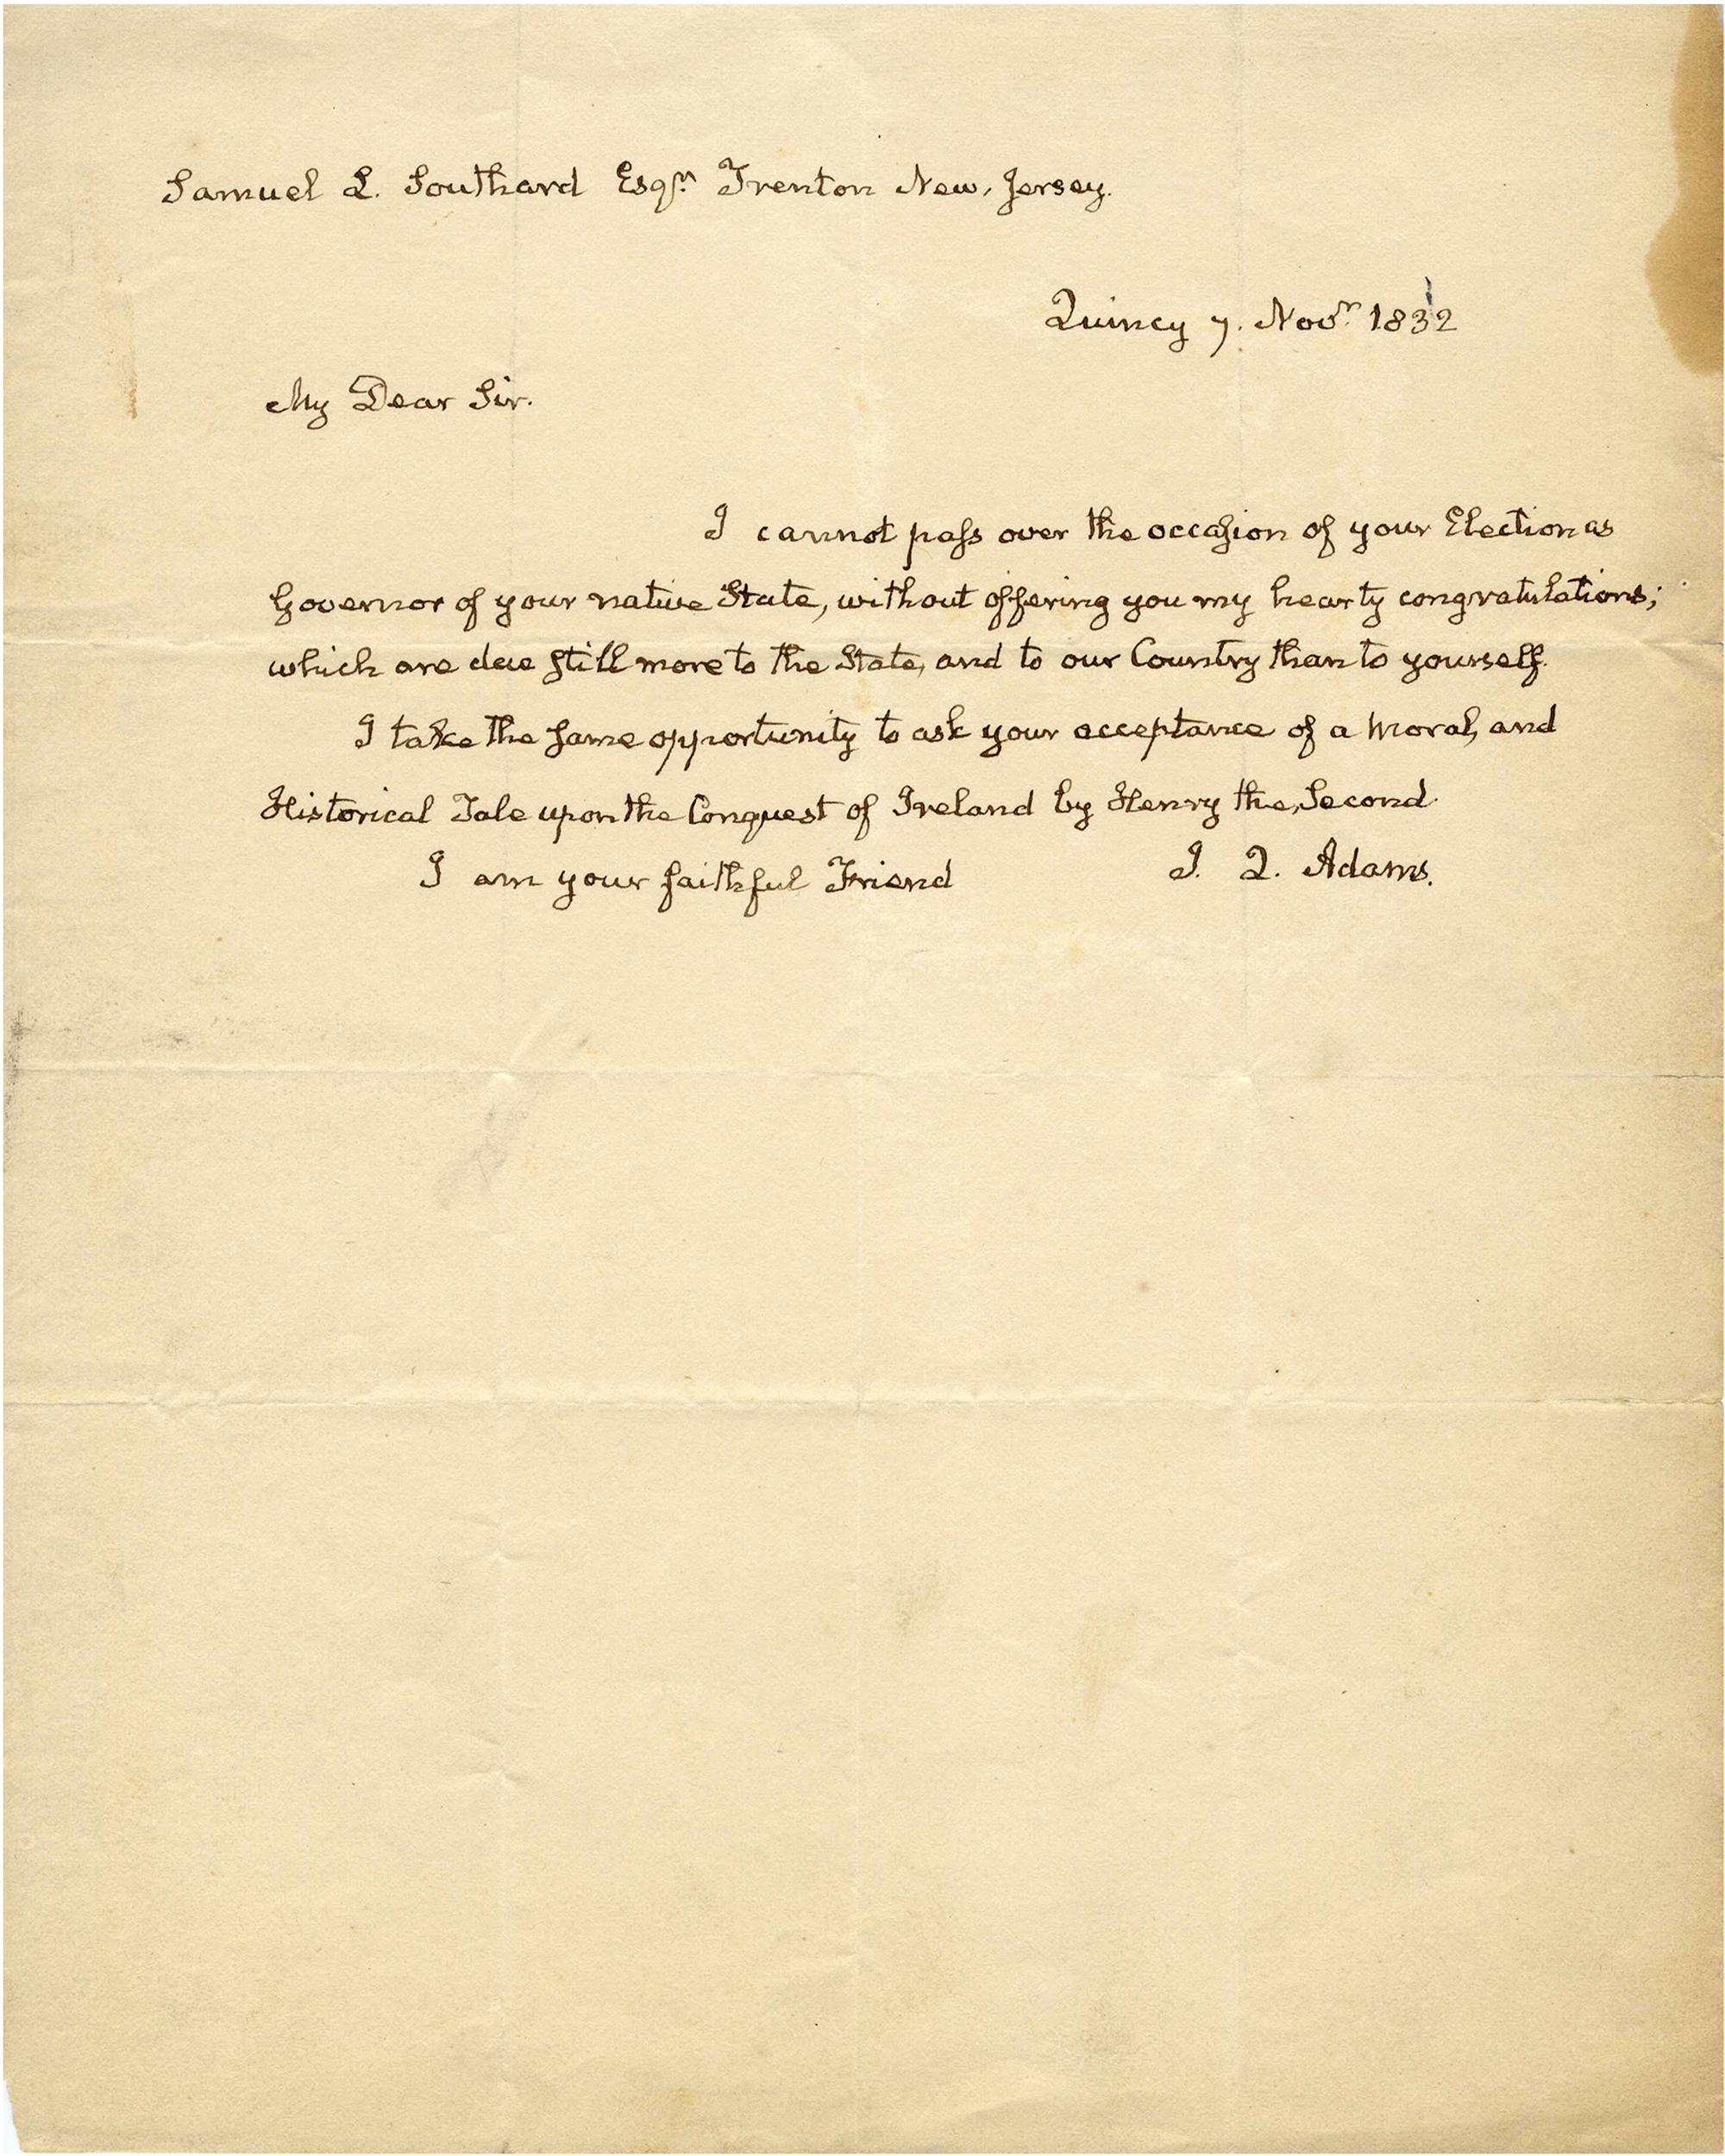 Samuel L. Southard Esqr. Trenton New, Jersey.
Quincy 7. Novr. 1832
My Dear Sir.
I cannot paſs over the occaſion of your Election as
Governor of your native State, without offering you my hearty congratulations;
which are due ſtill more to the State, and to our Country than to yourself.
I take the ſame opportunity to ask your acceptance of a Moral, and
Historical Tale upon the Conquest of Ireland by Henry the Second.
I am your faithful Friend J. Q. Adams.